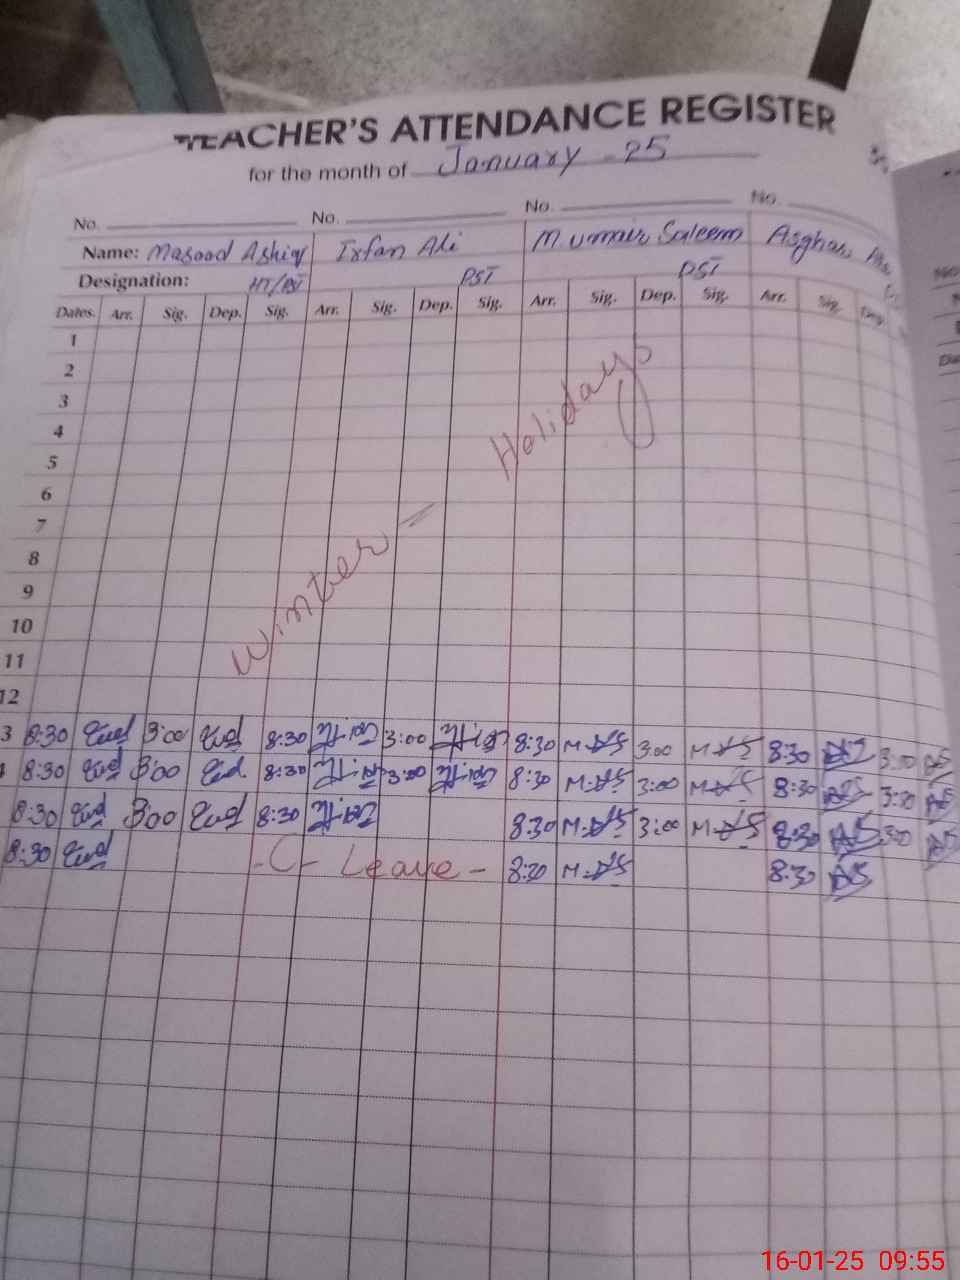 TEACHER'S ATTENDANCE REGISTER
for the month of January - 25
No. No. No. No.
Name: Masood Ashiq Irfan Ali M. Umair Saleem Asghar
Designation: HT/PST PST PST
Dates. Arr. Sig. Dep. Sig. Arr. Sig. Dep. Sig. Arr. Sig. Dep. Sig. Arr. Sig. Dep
1
2
3
4
5
6
7
8
9
10
11
12
Winter - Holidays
3 8:30 3:00 8:30 3:00 8:30 3:00 8:30 3:00
8:30 3:00 8:30 3:00 8:30 3:00 8:30 3:00
8:30 3:00 8:30 8:30 3:00 8:30 3:00
8:30 - C - Leave - 8:30 8:30
16-01-25 09:55